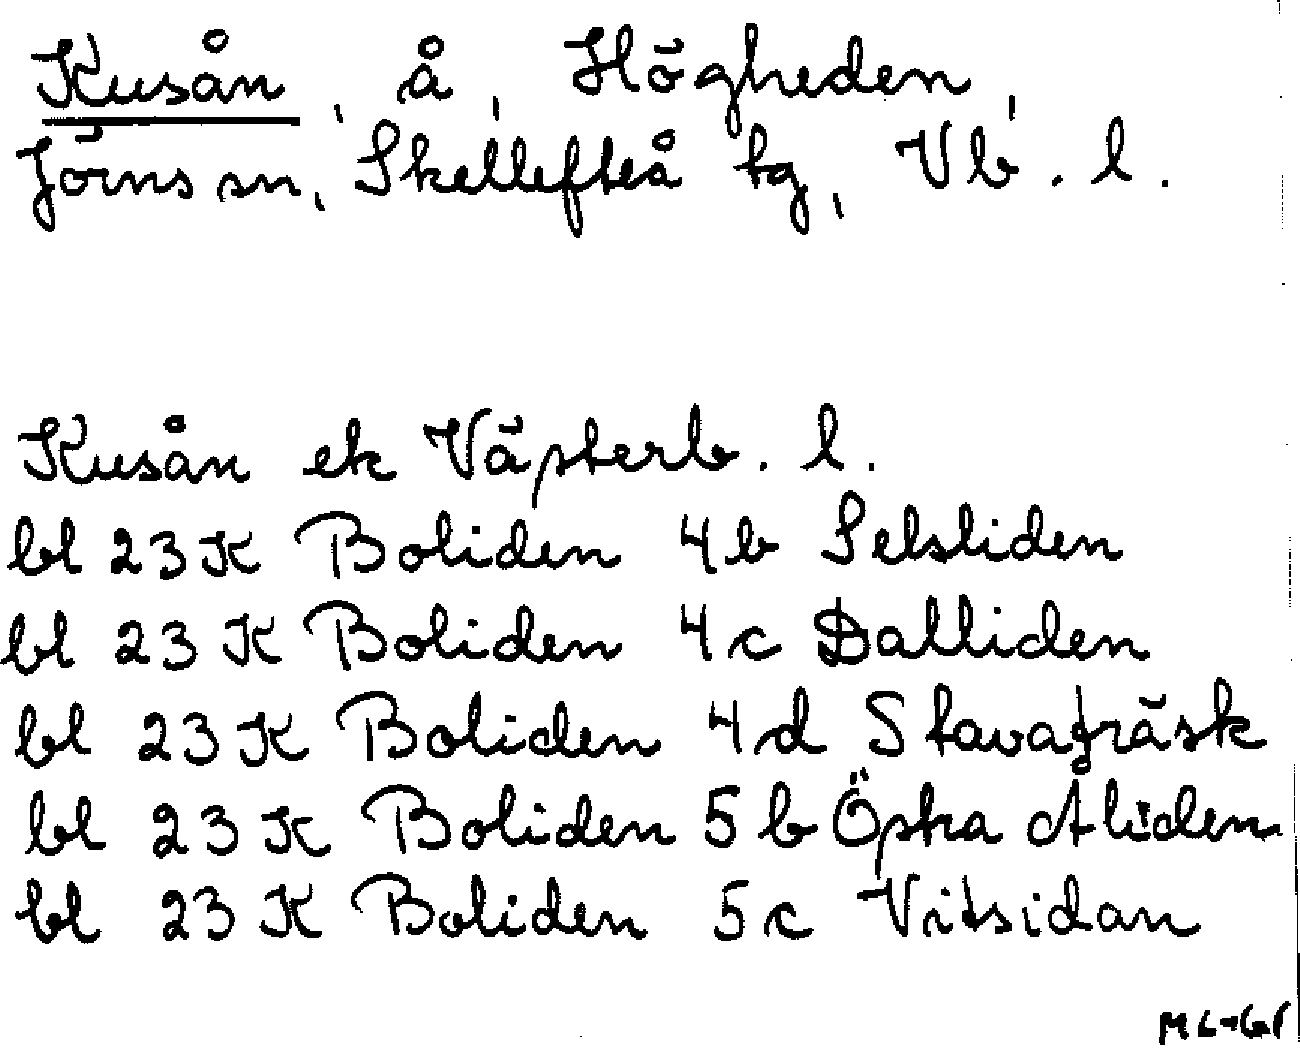 Kusån, å, Högheden,
Jörns sn, Skellefteå tg, Vb. l.
Kusån ek Västerb. l.
bl 23 K Boliden 4b Selsliden
bl 23 K Boliden 4c Dalliden
bl 23 K Boliden 4d Stavaträsk
bl 23 K Boliden 5b Östra Åliden
bl 23 K Boliden 5c Vitsidan